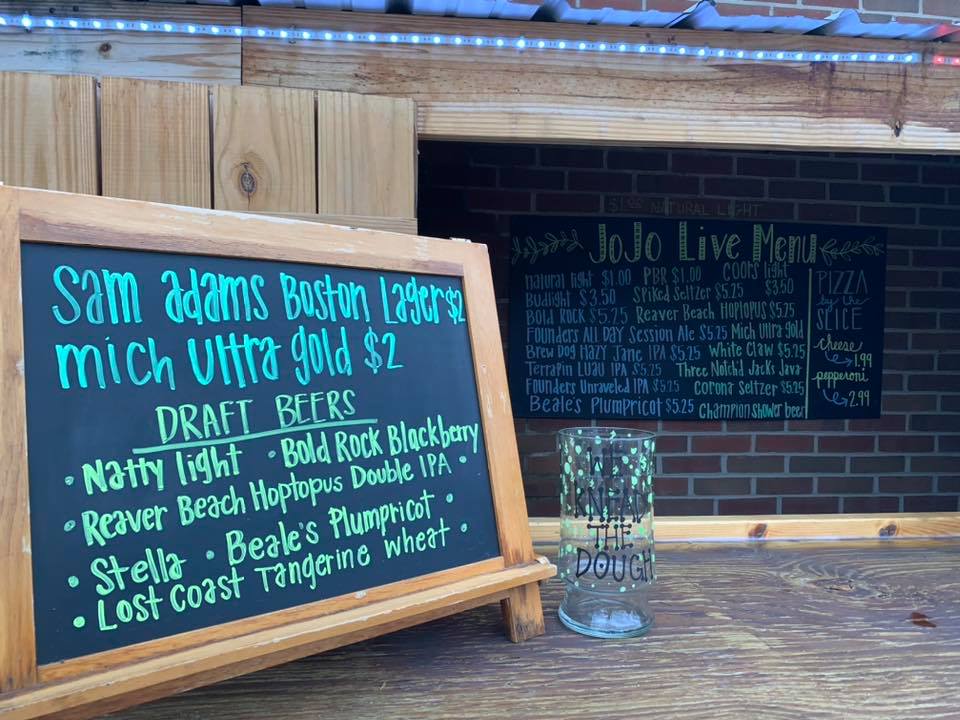 Sam adams Boston Lager $2
Mich Ultra gold $2
DRAFT BEERS
• Natty light • Bold Rock Blackberry
• Reaver Beach Hoptopus Double IPA •
• Stella • Beale's Plumpricot •
• Lost Coast Tangerine Wheat •
NATURAL LIGHT
JoJo Live Menu
Natural light $1.00 PBR $1.00 Coors light $3.50
Budlight $3.50 Spiked Seltzer $5.25
Bold Rock $5.25 Reaver Beach Hoptopus $5.25
Founders All Day Session Ale $5.25 Mich Ultra gold
Brew Dog Hazy Jane IPA $5.25 White Claw $5.25
Terrapin Luau IPA $5.25 Three Notchd Jacks Java
Founders Unraveled IPA $5.25 Corona Seltzer $5.25
Beale's Plumpricot $5.25 Champion shower beer
PIZZA
by the
SLICE
cheese
1.99
pepperoni
2.99
WE
KNEAD
THE
DOUGH